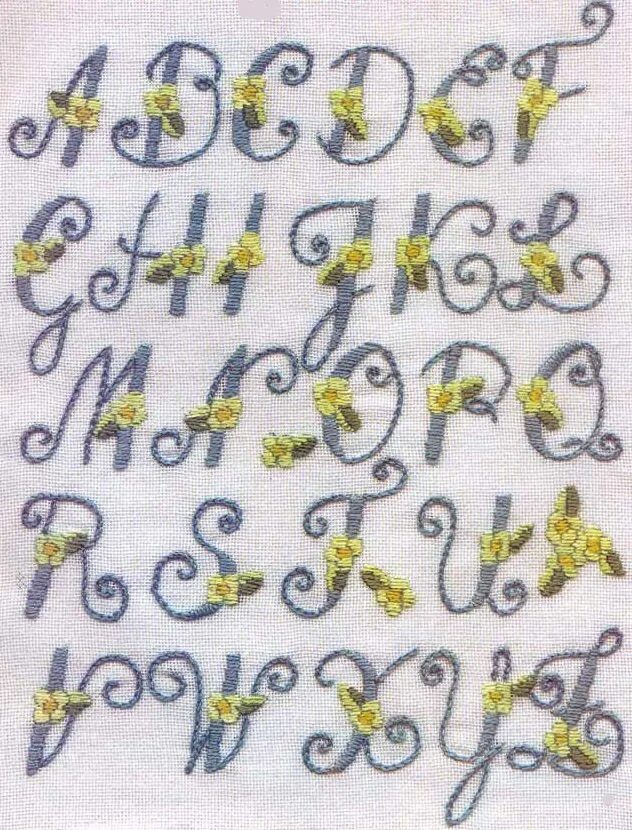 A B C D E F
G H I J K L
M N O P Q
R S T U
V W X Y Z